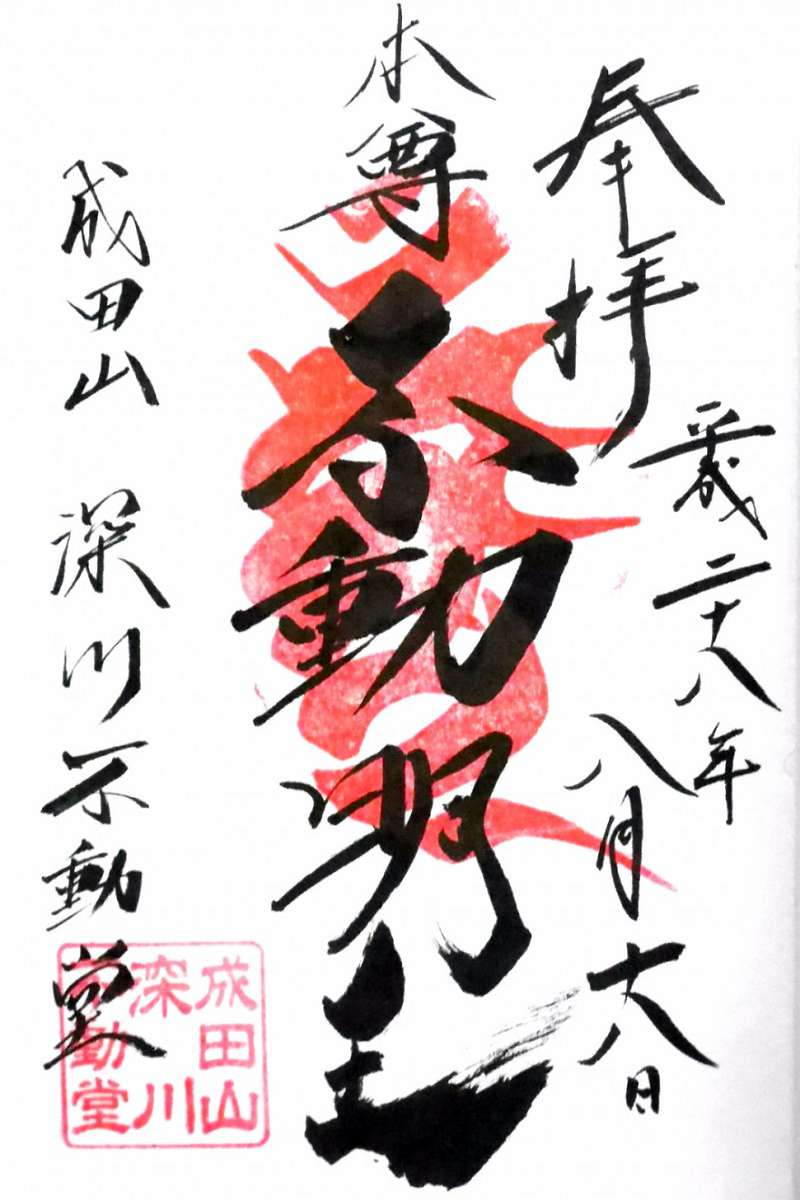 奉拝
平成二十八年
八月十八日
本尊
不動明王
成田山 深川不動堂
成田山
深川
不動堂